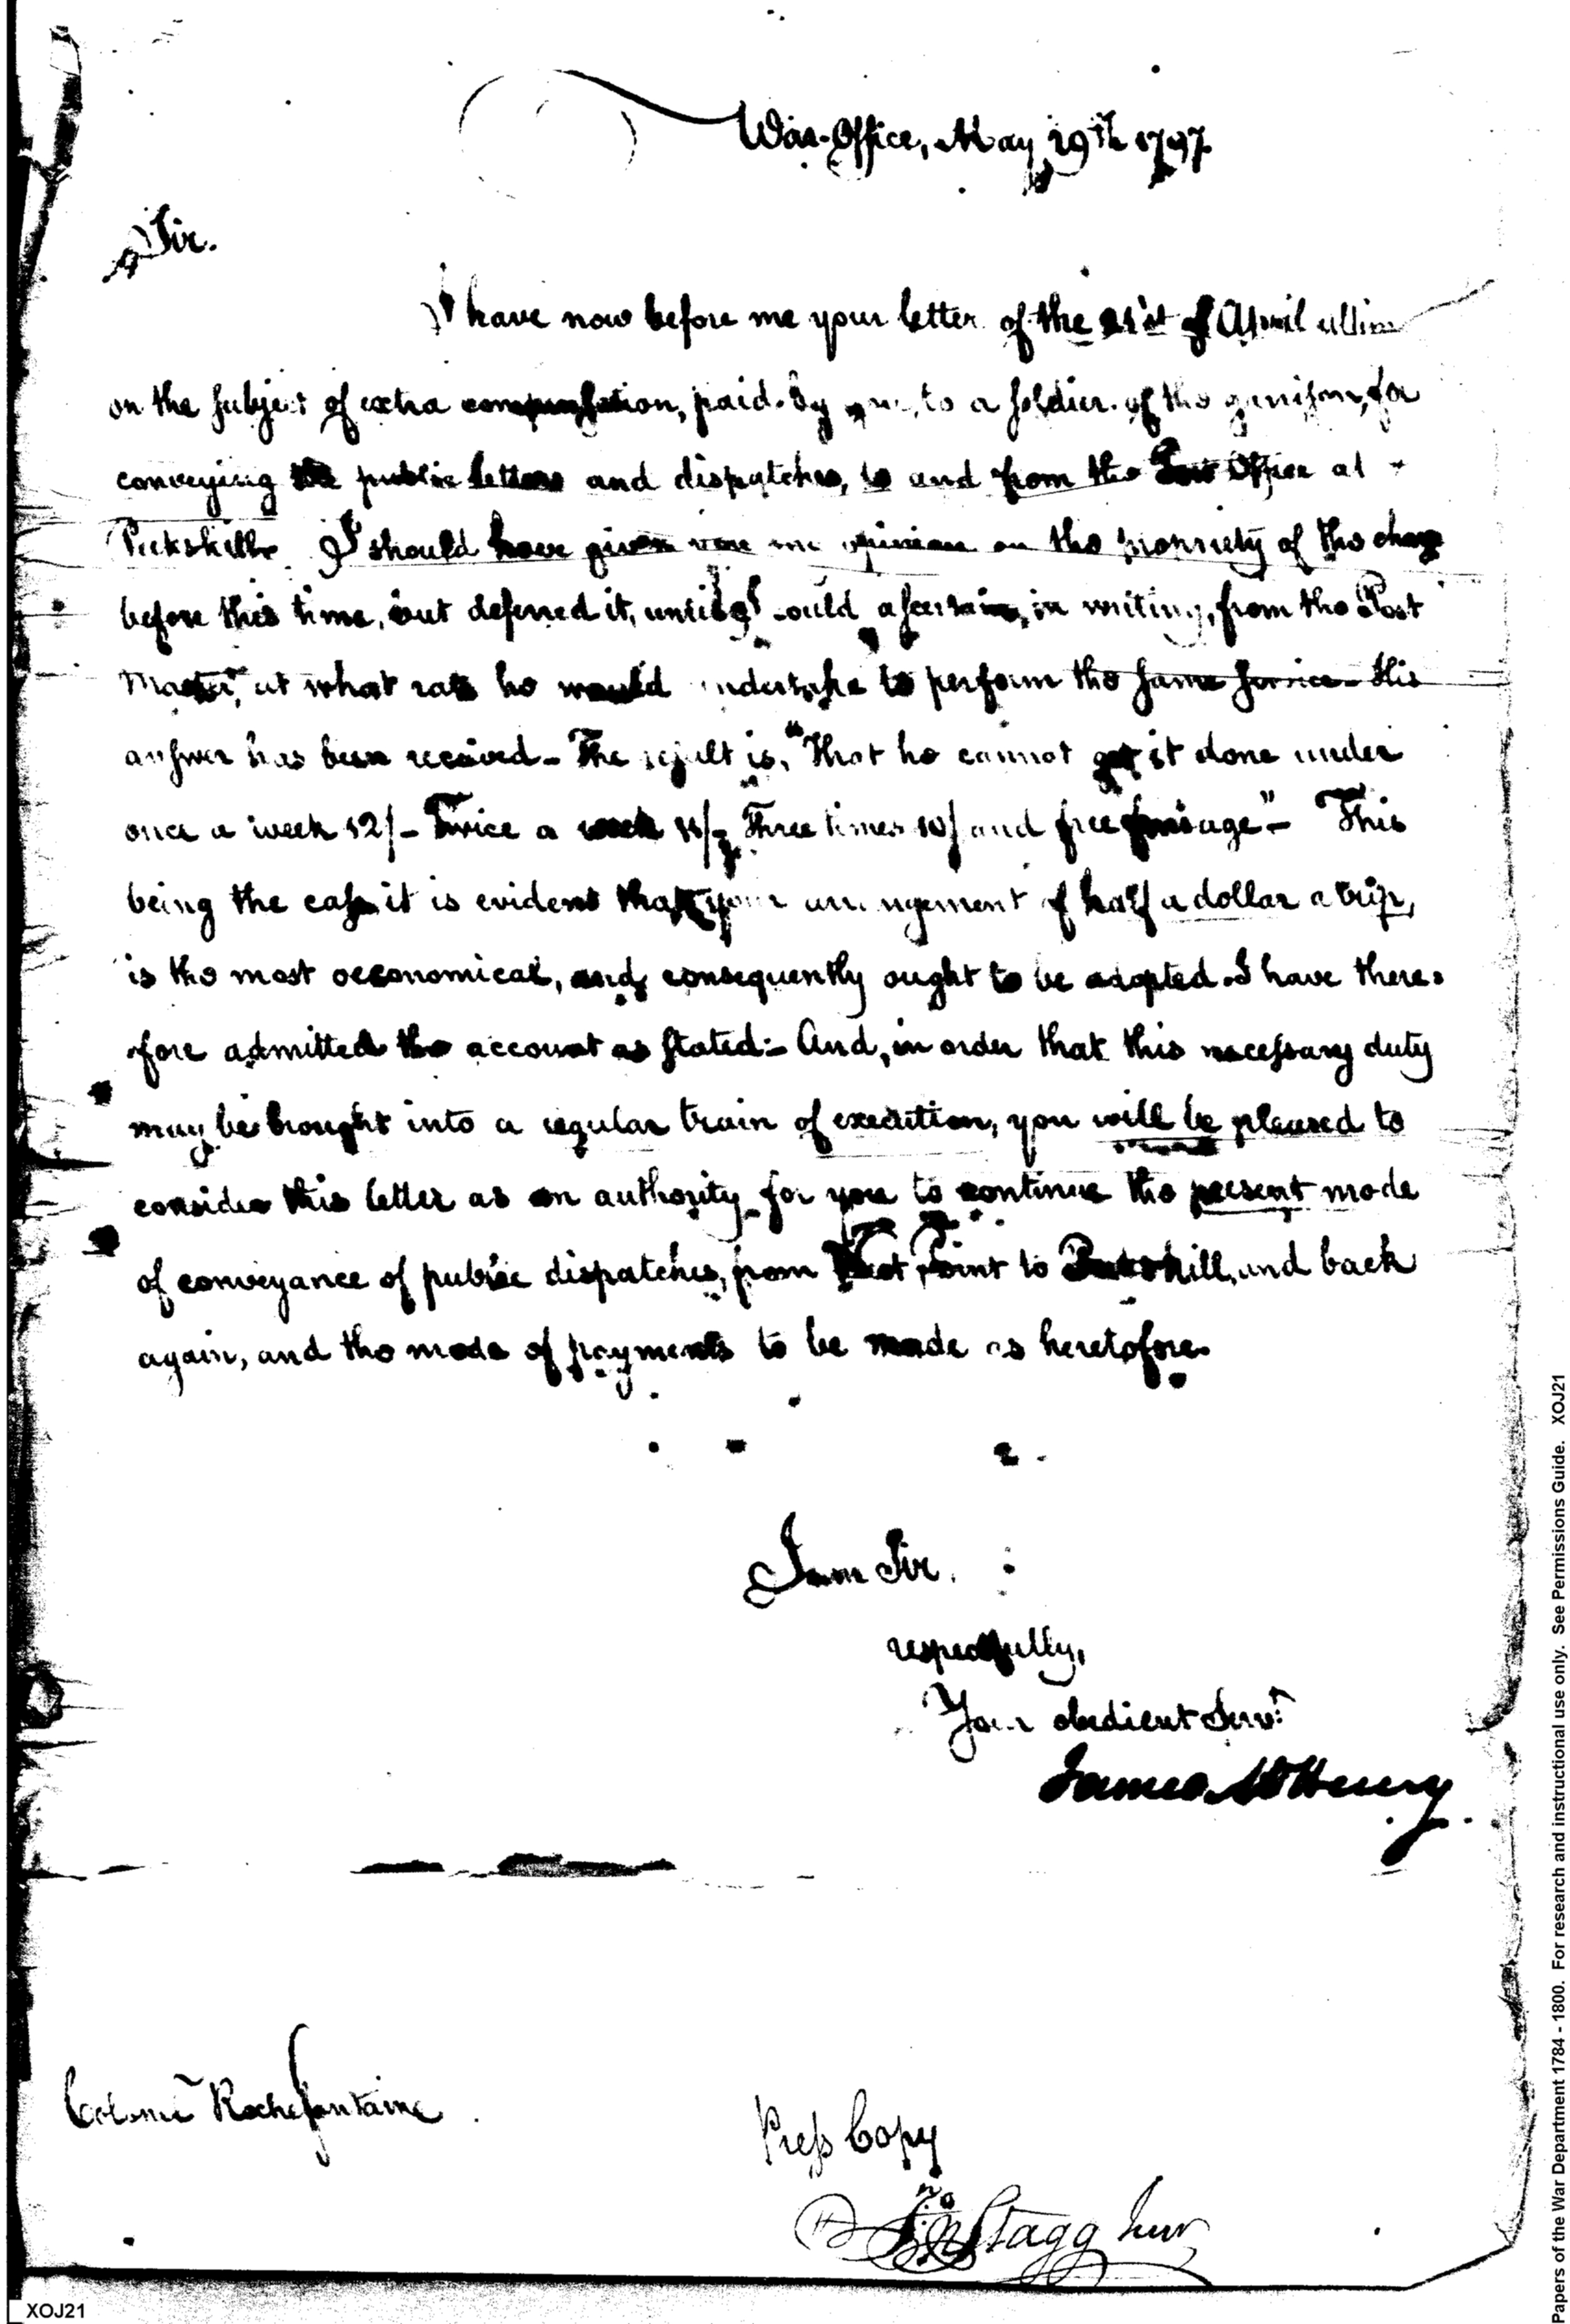 War-Office, May 29th 1797
Sir.
I have now before me your letter of the 21st of April ultimo
on the subject of extra compensation, paid by you, to a soldier of the garrison, for
conveying the public letters and dispatches, to and from the Post Office at
Peekskill. I should have given you my opinion on the propriety of the charge
before this time, but deferred it, until I could ascertain, in writing, from the Post
Master, at what rate he would undertake to perform the same service - His
answer has been received - The result is, "That he cannot get it done under
once a week 12/- Twice a week 11/- Three times 10/ and free ferriage" - This
being the case it is evident that your arrangement of half a dollar a trip,
is the most oeconomical, and consequently ought to be adopted. I have there-
fore admitted the account as stated:- And, in order that this necessary duty
may be brought into a regular train of execution, you will be pleased to
consider this letter as an authority for you to continue the present mode
of conveyance of public dispatches, from West Point to Peekskill, and back
again, and the mode of payments to be made as heretofore.
I am Sir.
respectfully,
Your obedient Servt
James McHenry
Colonel Rochefontaine
Press Copy
Jno Stagg Junr
Papers of the War Department 1784 - 1800. For research and instructional use only. See Permissions Guide. XOJ21
XOJ21